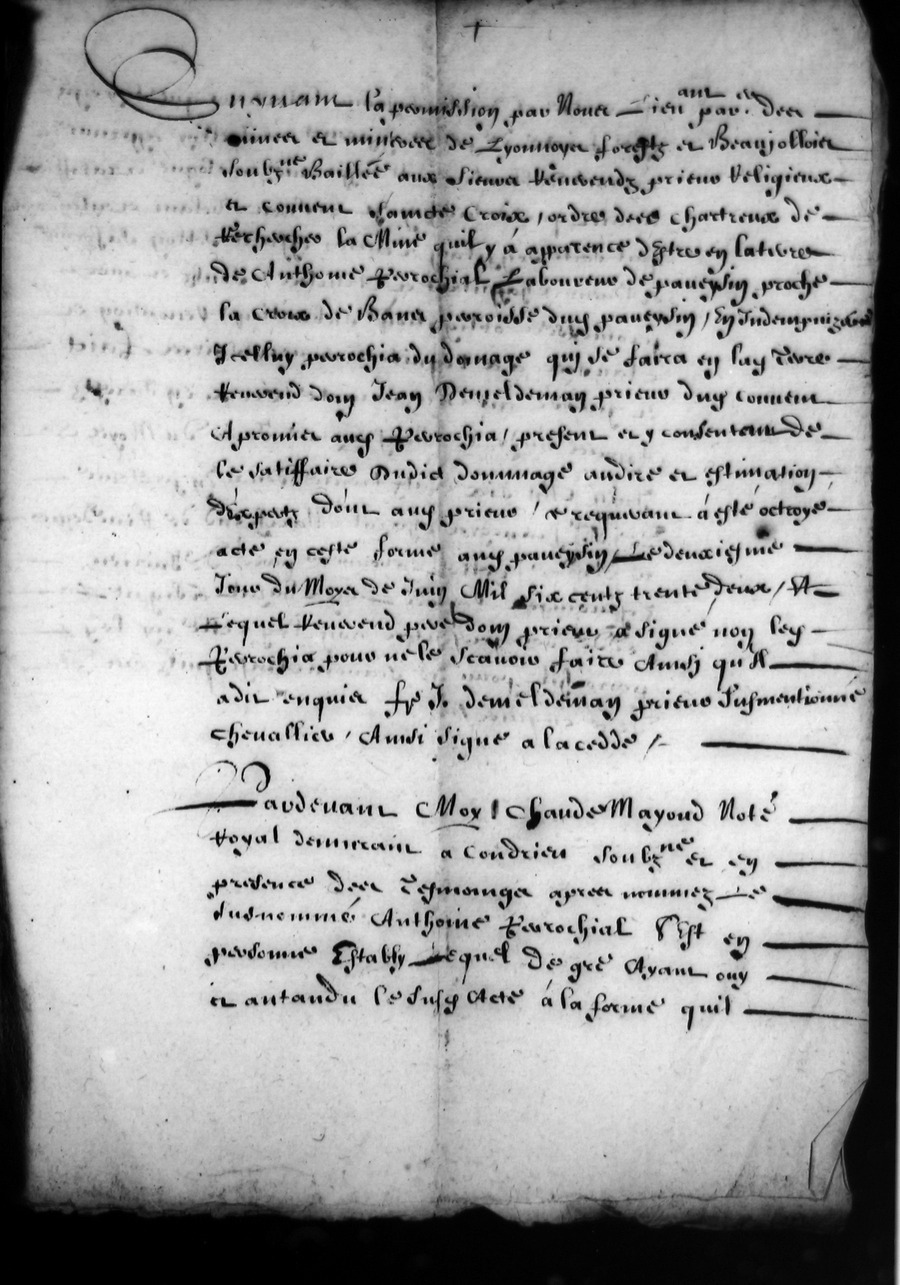 Suyvant la permission par Nous Lieu^ant par^er dees
mines et minieres de Lyonnoyes forestz et Beaujollois
soubz^ne Baillée aux Sieurs Reverendz prieur Religieux
et convent saincte Croix / ordre dees Chartreux de
Rechercher la Mine quil y á apparence d'Estre en la terre
de Anthoine Perrochial Laboureur de paveysin proche
la Croix de Banes parroisse dud paveysin / En Indempnizant
Icelluy perrochia du domage quj se faira en lad Terre
Reverend dom Jean Demeldeman prieur dud convent
A promis aud Perrochia / present et y consentent de
le satiffaire dudict dommage audire et estimation
d'expertz dont aud prieur / ce requerant á esté octroyé
acte en ceste forme aud paveysin Le deuxiesme
Jour du Moys de Juin Mil six centz trente deux / Et
Lequel Reverend pere dom prieur a signé non led
Perrochia pour ne le scavoir faire Ainsi qu'Il
a dit enquis fr J. demeldeman prieur susmentionné
Chevallier / Ainsi signé a la cedde /
Pardevant Moy Claude Mayoud Not^e
Royal demurant a Condrieu soubz^né et en
presence dees Tesmoings apres nommez Le
susnommé Anthoine Perrochial s'Est en
personne Estably Lequel de gré Ayant ouy
et antandu le susd Acte á la forme quil